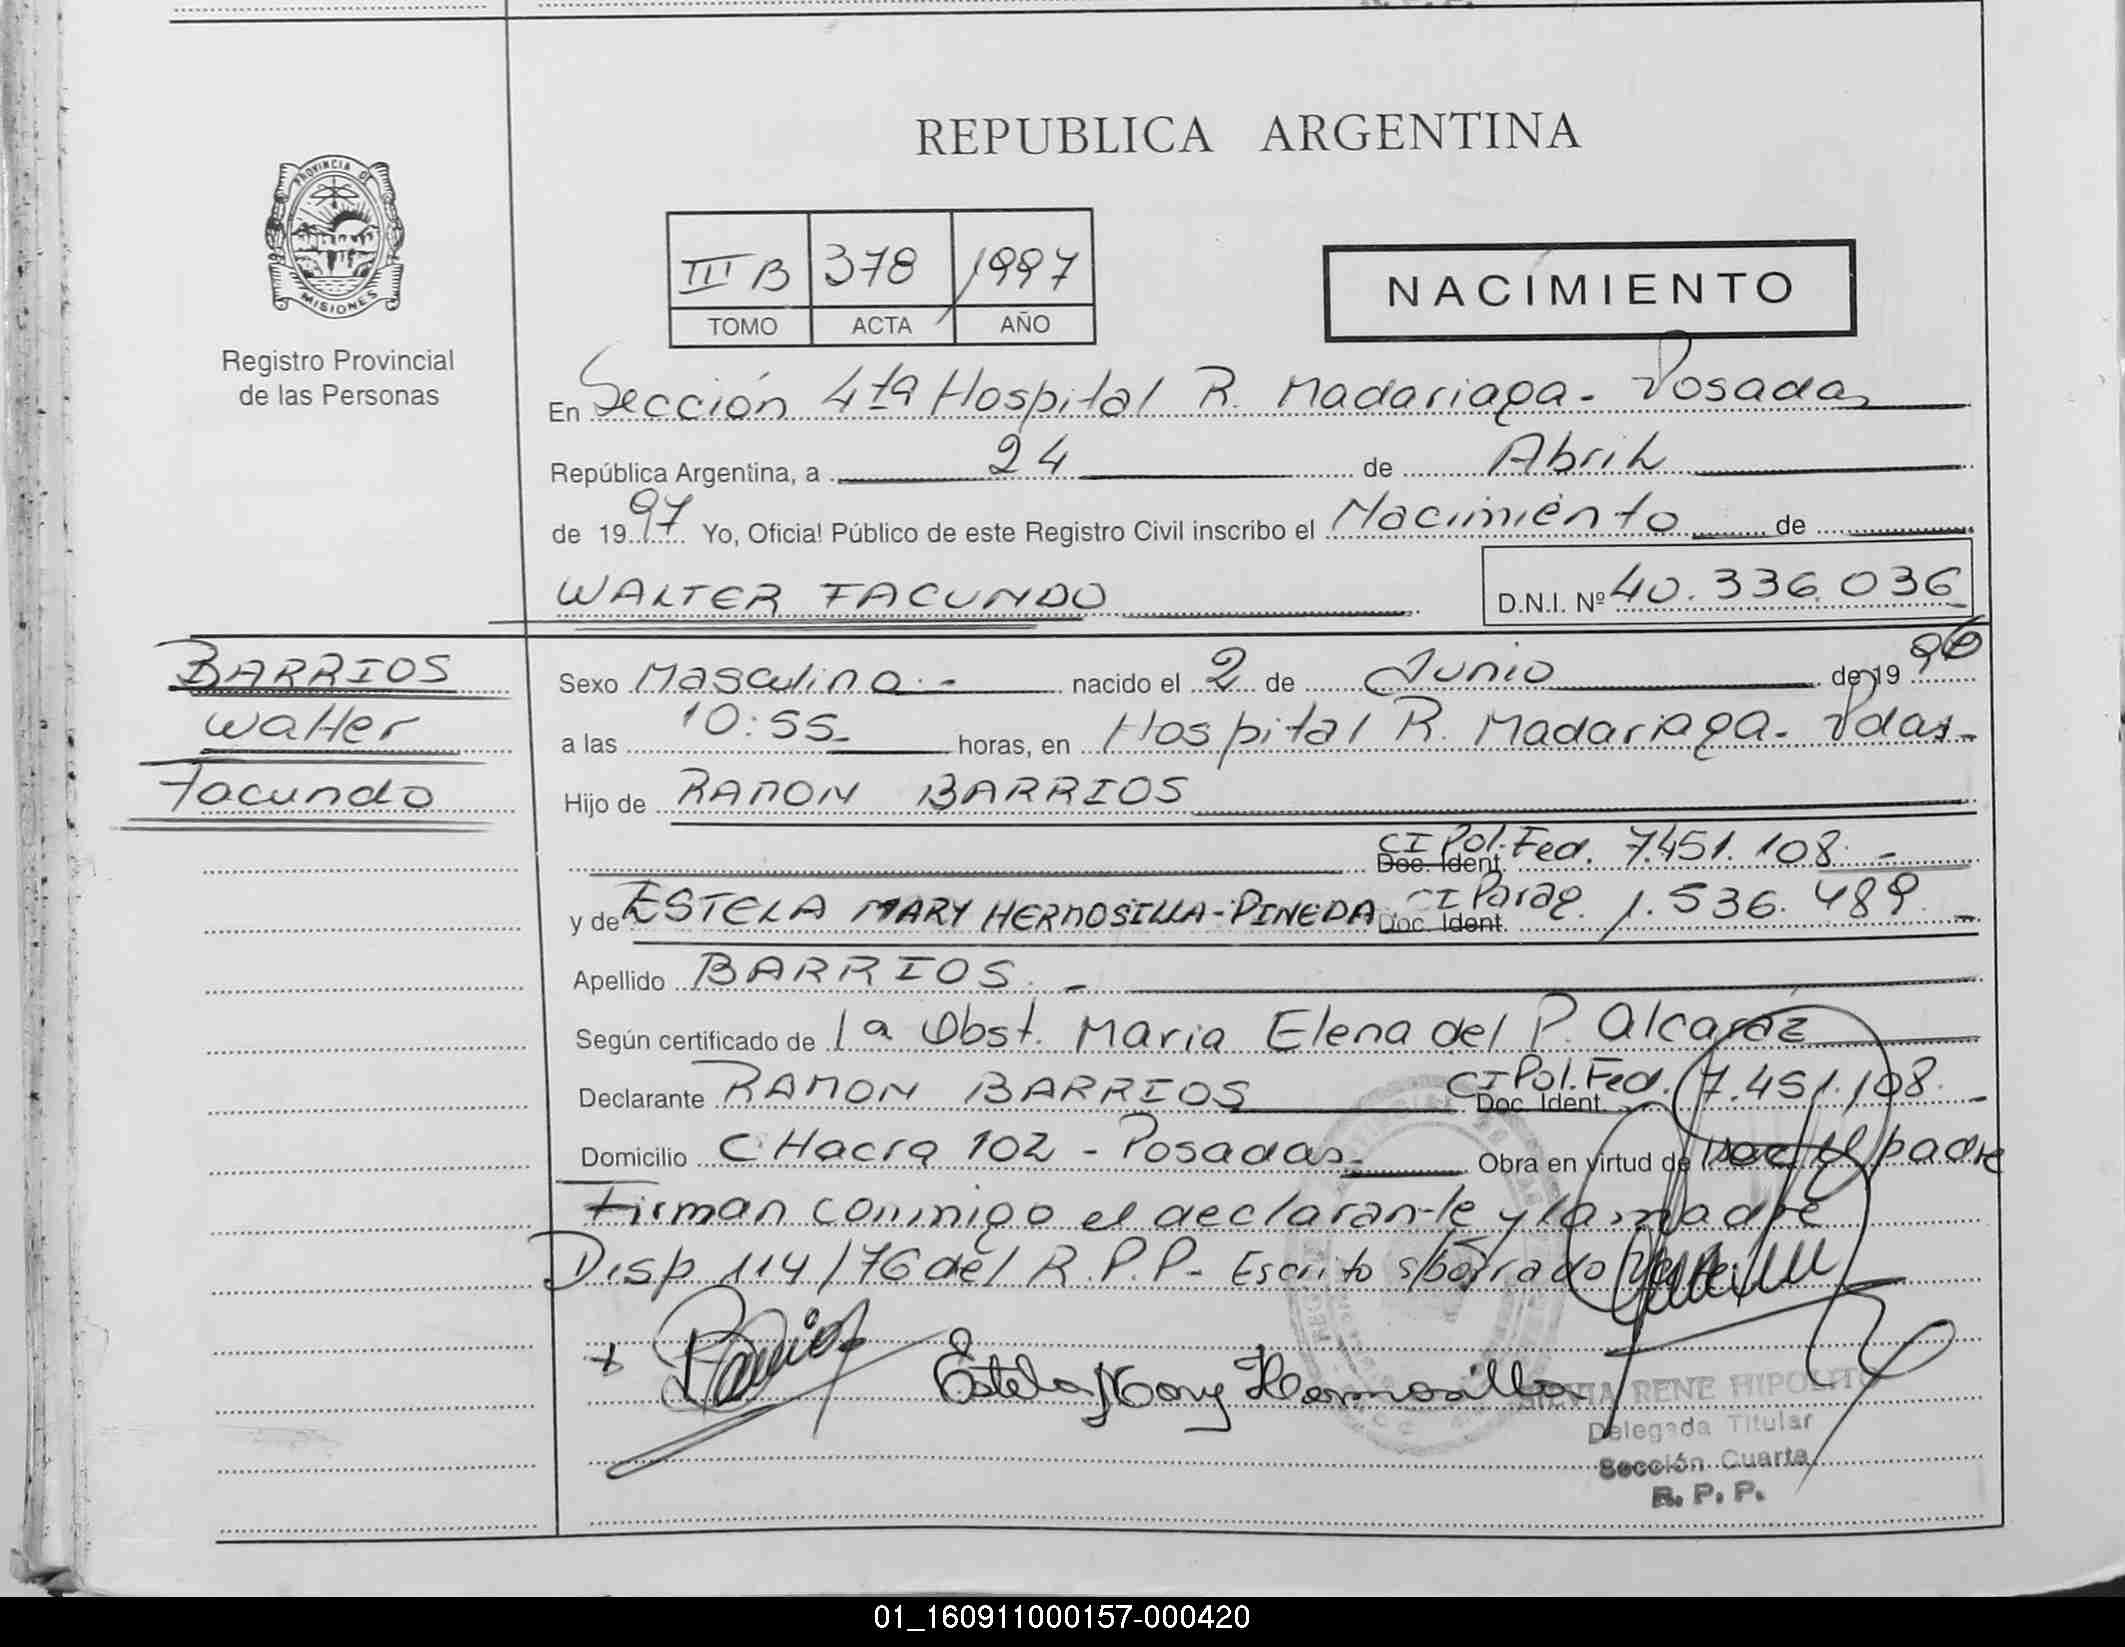 REPUBLICA ARGENTINA
PROVINCIA DE
MISIONES
Registro Provincial
de las Personas
III B 378 1997
TOMO ACTA AÑO
NACIMIENTO
En Sección 4ta Hospital R. Madariaga - Posadas
República Argentina, a 24 de Abril
de 1997 Yo, Oficial Público de este Registro Civil inscribo el Nacimiento de
WALTER FACUNDO
D.N.I. Nº 40.336.036
BARRIOS
Walter
Facundo
Sexo Masculino.- nacido el 2 de Junio de 1996
a las 10:55 horas, en Hospital R. Madariaga - Pdas-
Hijo de RAMON BARRIOS
Doc. Ident. CI Pol. Fed. 7.451.108.-
y de ESTELA MARY HERMOSILLA-PINEDA Doc. Ident. CI Parag. 1.536.489.-
Apellido BARRIOS.-
Según certificado de la Obst. Maria Elena del P. Alcaráz
Declarante RAMON BARRIOS Doc. Ident. CI Pol. Fed. 7.451.108.-
Domicilio CHacra 102 - Posadas- Obra en virtud de ser el padre
Firman conmigo el declarante y la madre
Disp 114/76 del R.P.P- Escrito s/borrado
Estela Mary Hermosilla
SILVIA RENE HIPOLITO
Delegada Titular
Sección Cuarta
R. P. P.
01_160911000157-000420